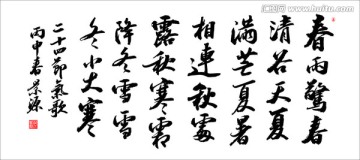 春雨驚春
清谷天夏
滿芒夏暑
相連秋處
露秋寒霜
降冬雪雪
冬小大寒
二十四節氣歌
丙申春景源